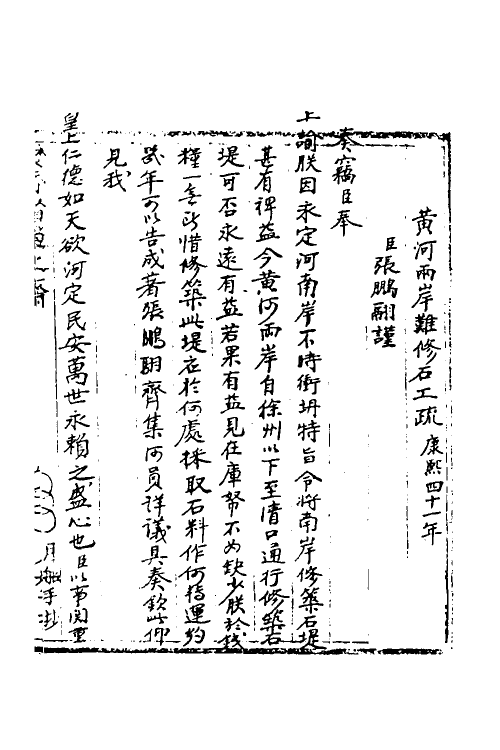 黃河兩岸難修石工疏康熙四十一年
臣張鵬翮謹
奏竊臣奉
上諭朕因永定河南岸不時衝坍特旨令將南岸修築石堤
甚有裨益今黃河兩岸自徐州以下至清口通行修築石
堤可否永遠有益若果有益見在庫帑不為缺少朕於錢
糧一無所惜修築此堤應於何處採取石料作何轉運約
幾年可以告成著張鵬翮齊集河員詳議具奏欽此仰
見我
皇上仁德如天欲河定民安萬世永賴之盛心也臣以事関重